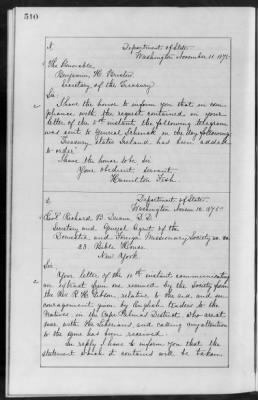 510
Department of State
Washington November 11 1875
The Honorable
Benjamin H. Bristow
Secretary of the Treasury
Sir:
I have the honor to inform you that in com-
pliance with the request contained in your
letter of the 5th instant the following telegram
was sent to General Schenck on the day following
"Treasury states Ireland has been added
to order"
I have the honor to be Sir
Your obedient servant
Hamilton Fish
Department of State
Washington Novem 12, 1875
Revd Richard B. Duane D.D.
Secretary and General Agent of the
Domestic and Foreign Missionary Society
23 Bible House
New York
Sir:
Your letter of the 10th instant communicating
an extract from one received by the Society from
the Rev. R. H. Gibson, relative to the aid and en-
couragement given by English traders to the
Natives in the Cape Palmas District, who are at
war with the Liberians and calling my attention
to the same has been received.
In reply I have to inform you that the
statement which it contained will be taken